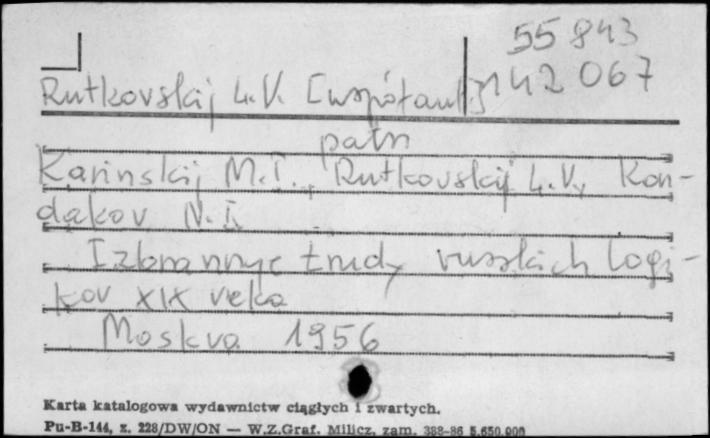 55 843
142 067
Rutkovskij L.V. [współaut.]
patrz
Karinskij M.I., Rutkovskij L.V., Kon-
dakov N.I.
Izbrannye trudy russkich logi-
kov XIX veka
Moskva 1956
Karta katalogowa wydawnictw ciągłych i zwartych.
Pu-B-144, z. 228/DW/ON — W.Z.Graf. Milicz, zam. 388-86 5.650.000